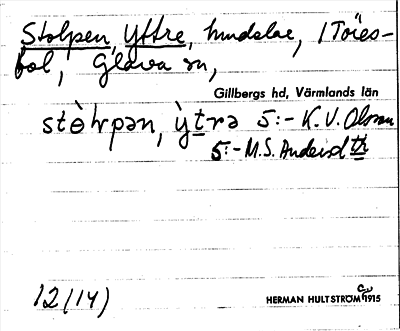 Stolpen, Yttre, hmdslae, / Töies-
fol, Glava sn,
Gillbergs hd, Värmlands län
stè̵lrpən, ỳtrə 5:- K. V. Olsson
5:- M.S. Anderson
12(14) HERMAN HULTSTRÖM 1915